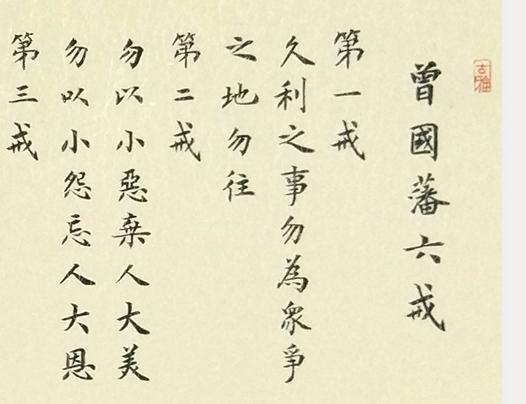 曾國藩六戒
第一戒
久利之事勿為衆爭
之地勿往
第二戒
勿以小惡棄人大美
勿以小怨忘人大恩
第三戒